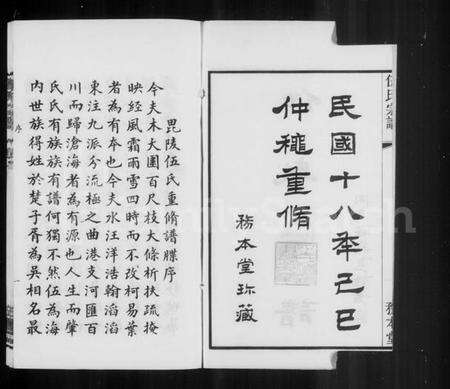 伍氏宗譜
務本堂
民國十八年己巳
仲穐重脩
務本堂珎藏
毘陵伍氏重脩譜牒序
今夫木大圍百尺枝大條析扶疏掩
映經風霜雨雪四時而不改柯易葉
者為有本也今夫水汪洋浩翰滔滔
東注九派分流極之曲港支河匯百
川而歸滄海者為有源也人生而肇
氏氏有族族有譜何獨不然伍為海
内世族得姓於楚子胥為吳相名最
序